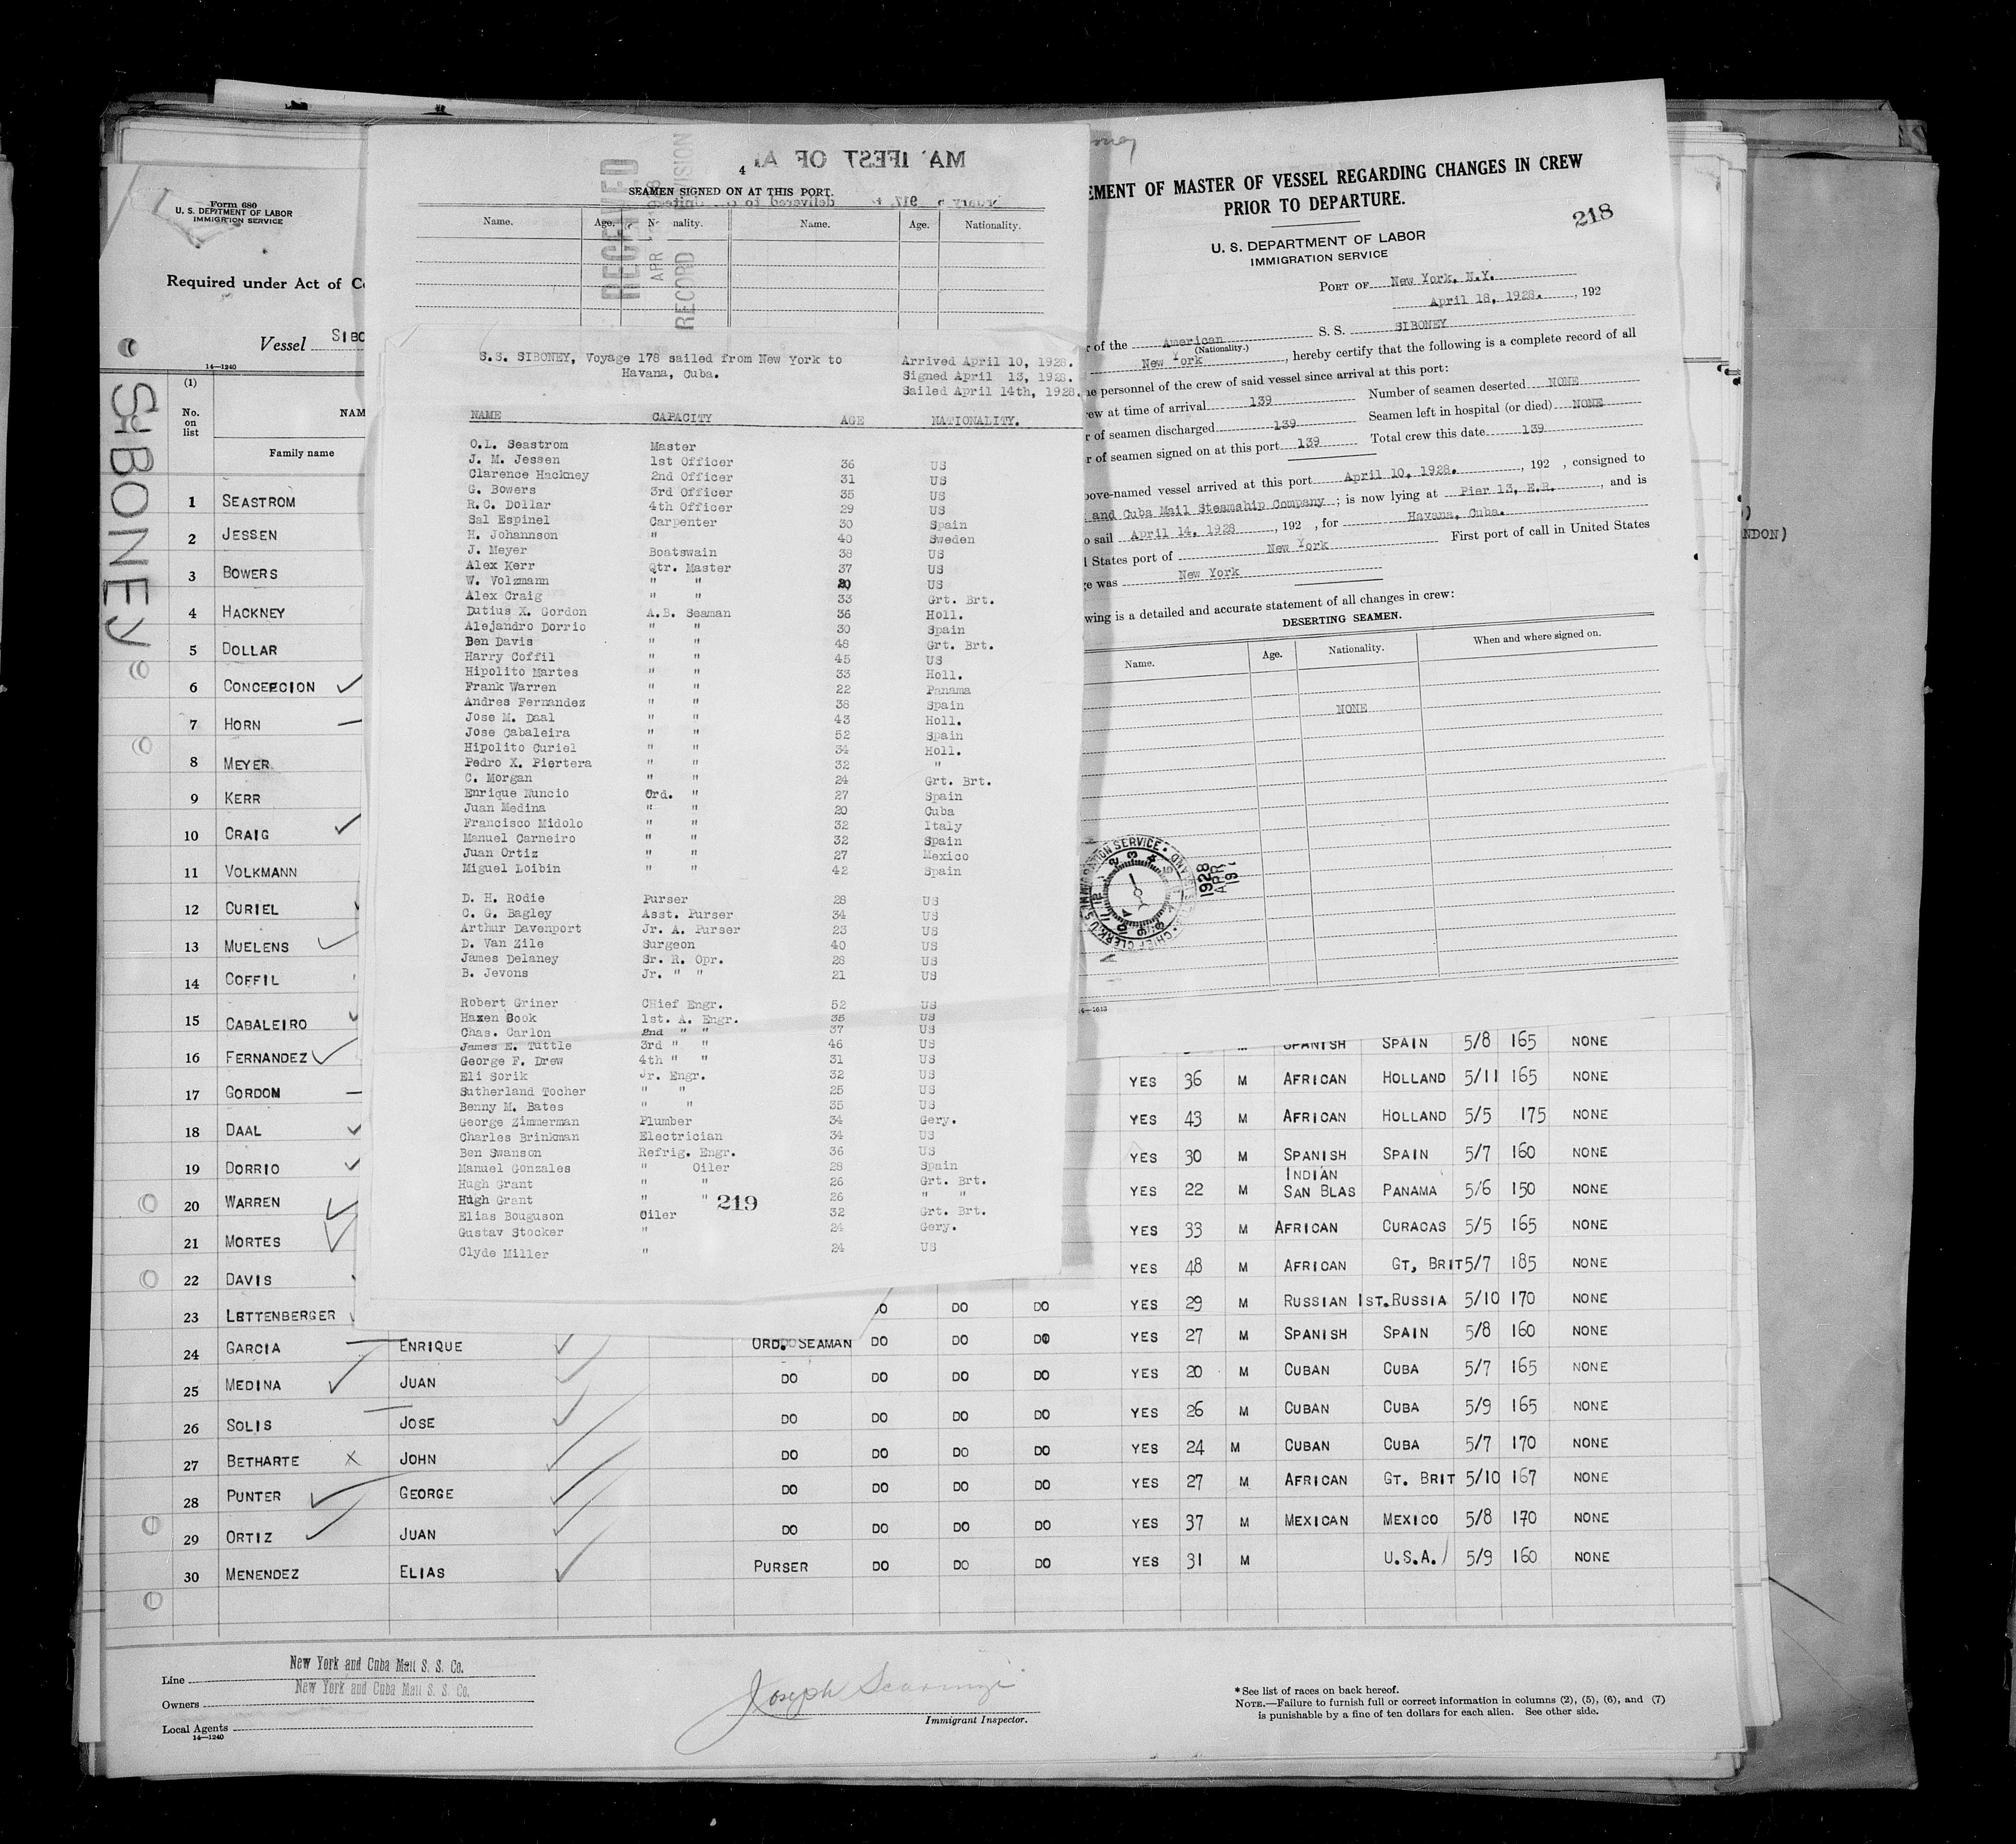 Form 680
U. S. DEPARTMENT OF LABOR
IMMIGRATION SERVICE
Required under Act of
Vessel SIBO
14—1240
SIBONEY
(1)
No. on list
NAM
Family name
1 SEASTROM
2 JESSEN
3 BOWERS
4 HACKNEY
5 DOLLAR
6 CONCEPCION
7 HORN
8 MEYER
9 KERR
10 CRAIG
11 VOLKMANN
12 CURIEL
13 MUELENS
14 COFFIL
15 CABALEIRO
16 FERNANDEZ
17 GORDON
18 DAAL
19 DORRIO
20 WARREN
21 MORTES
22 DAVIS
23 LETTENBERGER
24 GARCIA ENRIQUE ORD. SEAMAN DO DO DO YES 27 M SPANISH SPAIN 5/8 160 NONE
25 MEDINA JUAN DO DO DO DO YES 20 M CUBAN CUBA 5/7 165 NONE
26 SOLIS JOSE DO DO DO DO YES 26 M CUBAN CUBA 5/9 165 NONE
27 BETHARTE X JOHN DO DO DO DO YES 24 M CUBAN CUBA 5/7 170 NONE
28 PUNTER GEORGE DO DO DO DO YES 27 M AFRICAN GT. BRIT 5/10 167 NONE
29 ORTIZ JUAN DO DO DO DO YES 37 M MEXICAN MEXICO 5/8 170 NONE
30 MENENDEZ ELIAS PURSER DO DO DO YES 31 M U.S.A. 5/9 160 NONE
SPANISH SPAIN 5/8 165 NONE
YES 36 M AFRICAN HOLLAND 5/11 165 NONE
YES 43 M AFRICAN HOLLAND 5/5 175 NONE
YES 30 M SPANISH SPAIN 5/7 160 NONE
YES 22 M INDIAN SAN BLAS PANAMA 5/6 150 NONE
YES 33 M AFRICAN CURACAS 5/5 165 NONE
YES 48 M AFRICAN GT, BRIT 5/7 185 NONE
DO DO DO YES 29 M RUSSIAN 1ST.RUSSIA 5/10 170 NONE
Line New York and Cuba Mail S. S. Co.
Owners New York and Cuba Mail S. S. Co.
Local Agents
14—1240
Joseph
Immigrant Inspector.
*See list of races on back hereof.
NOTE.—Failure to furnish full or correct information in columns (2), (5), (6), and (7)
is punishable by a fine of ten dollars for each alien. See other side.
4
SEAMEN SIGNED ON AT THIS PORT.
RECEIVED
APR
RECORD DIVISION
Name. Age. Nationality. Name. Age. Nationality.
S.S. SIBONEY, Voyage 178 sailed from New York to
Havana, Cuba.
Arrived April 10, 1928.
Signed April 13, 1928.
Sailed April 14th, 1928.
NAME CAPACITY AGE NATIONALITY.
O.L. Seastrom Master
J. M. Jessen 1st Officer 36 US
Clarence Hackney 2nd Officer 31 US
G. Bowers 3rd Officer 35 US
R.C. Dollar 4th Officer 29 US
Sal Espinel Carpenter 30 Spain
H. Johannson " 40 Sweden
J. Meyer Boatswain 38 US
Alex Kerr Qtr. Master 37 US
W. Volzmann " " 30 US
Alex Craig " " 33 Grt. Brt.
Dutius X. Gordon A.B. Seaman 36 Holl.
Alejandro Dorrio " " 30 Spain
Ben Davis " " 48 Grt. Brt.
Harry Coffil " " 45 US
Hipolito Martes " " 33 Holl.
Frank Warren " " 22 Panama
Andres Fernandez " " 38 Spain
Jose M. Daal " " 43 Holl.
Jose Cabaleira " " 52 Spain
Hipolito Curiel " " 34 Holl.
Pedro X. Piertera " " 32 "
C. Morgan " " 24 Grt. Brt.
Enrique Nuncio Ord. " 27 Spain
Juan Medina " " 20 Cuba
Francisco Midolo " " 32 Italy
Manuel Carneiro " " 32 Spain
Juan Ortiz " " 27 Mexico
Miguel Loibin " " 42 Spain
D. H. Rodie Purser 28 US
C. G. Bagley Asst. Purser 34 US
Arthur Davenport Jr. A. Purser 23 US
D. Van Zile Surgeon 40 US
James Delaney Sr. R. Opr. 28 US
B. Jevons Jr. " " 21 US
Robert Griner CHief Engr. 52 US
Haxen Book 1st. A. Engr. 35 US
Chas. Carlon 2nd " " 37 US
James E. Tuttle 3rd " " 46 US
George F. Drew 4th " " 31 US
Eli Sorik Jr. Engr. 32 US
Sutherland Tocher " " 25 US
Benny M. Bates " " 35 US
George Zimmerman Plumber 34 Gery.
Charles Brinkman Electrician 34 US
Ben Swanson Refrig. Engr. 36 US
Manuel Gonzales " Oiler 28 Spain
Hugh Grant " " 26 Grt. Brt.
Hugh Grant " " 26 " "
219
Elias Bouguson Oiler 32 Grt. Brt.
Gustav Stocker " 24 Gery.
Clyde Miller " 24 US
EMENT OF MASTER OF VESSEL REGARDING CHANGES IN CREW
PRIOR TO DEPARTURE.
218
U. S. DEPARTMENT OF LABOR
IMMIGRATION SERVICE
PORT OF New York, N.Y.
April 18, 1928. , 192
r of the American S. S. SIBONEY
(Nationality.)
New York , hereby certify that the following is a complete record of all
he personnel of the crew of said vessel since arrival at this port:
ew at time of arrival 139 Number of seamen deserted NONE
r of seamen discharged 139 Seamen left in hospital (or died) NONE
r of seamen signed on at this port 139 Total crew this date 139
bove-named vessel arrived at this port April 10, 1928. , 192 , consigned to
and Cuba Mail Steamship Company ; is now lying at Pier 13, E.R. , and is
o sail April 14, 1928 , 192 , for Havana, Cuba.
d States port of New York First port of call in United States
e was New York
wing is a detailed and accurate statement of all changes in crew:
DESERTING SEAMEN.
Name. Age. Nationality. When and where signed on.
NONE
1928 APR 19
NDON)